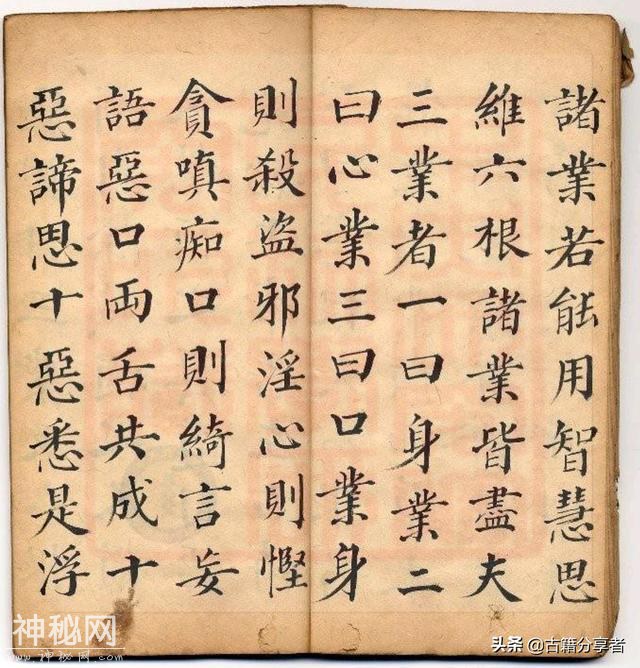 諸業若能用智慧思
維六根諸業皆盡夫
三業者一曰身業二
曰心業三曰口業身
則殺盜邪淫心則慳
貪嗔痴口則綺言妄
語惡口両舌共成十
惡諦思十惡悉是浮
神秘网
www.shenmiwang.com
头条 @古籍分享者